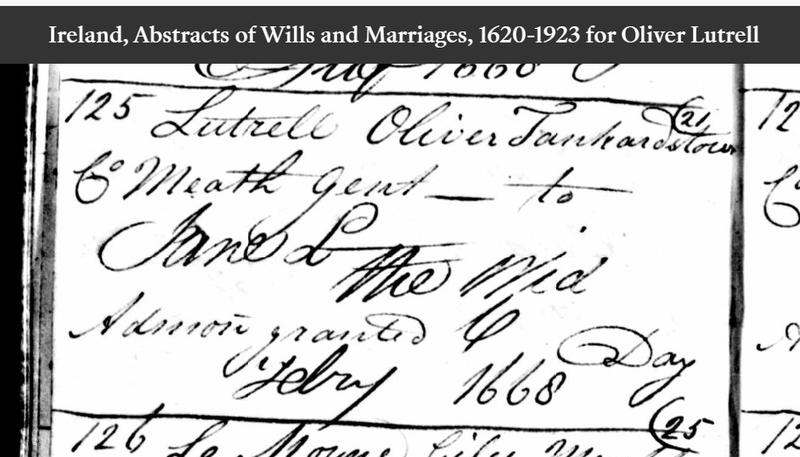 Ireland, Abstracts of Wills and Marriages, 1620-1923 for Oliver Lutrell
1668
125 Lutrell Oliver Tankardstown (21
Co Meath Gent — to
Jane L— the Wid
Admon granted 6 Day
Febry 1668
126 (25
12